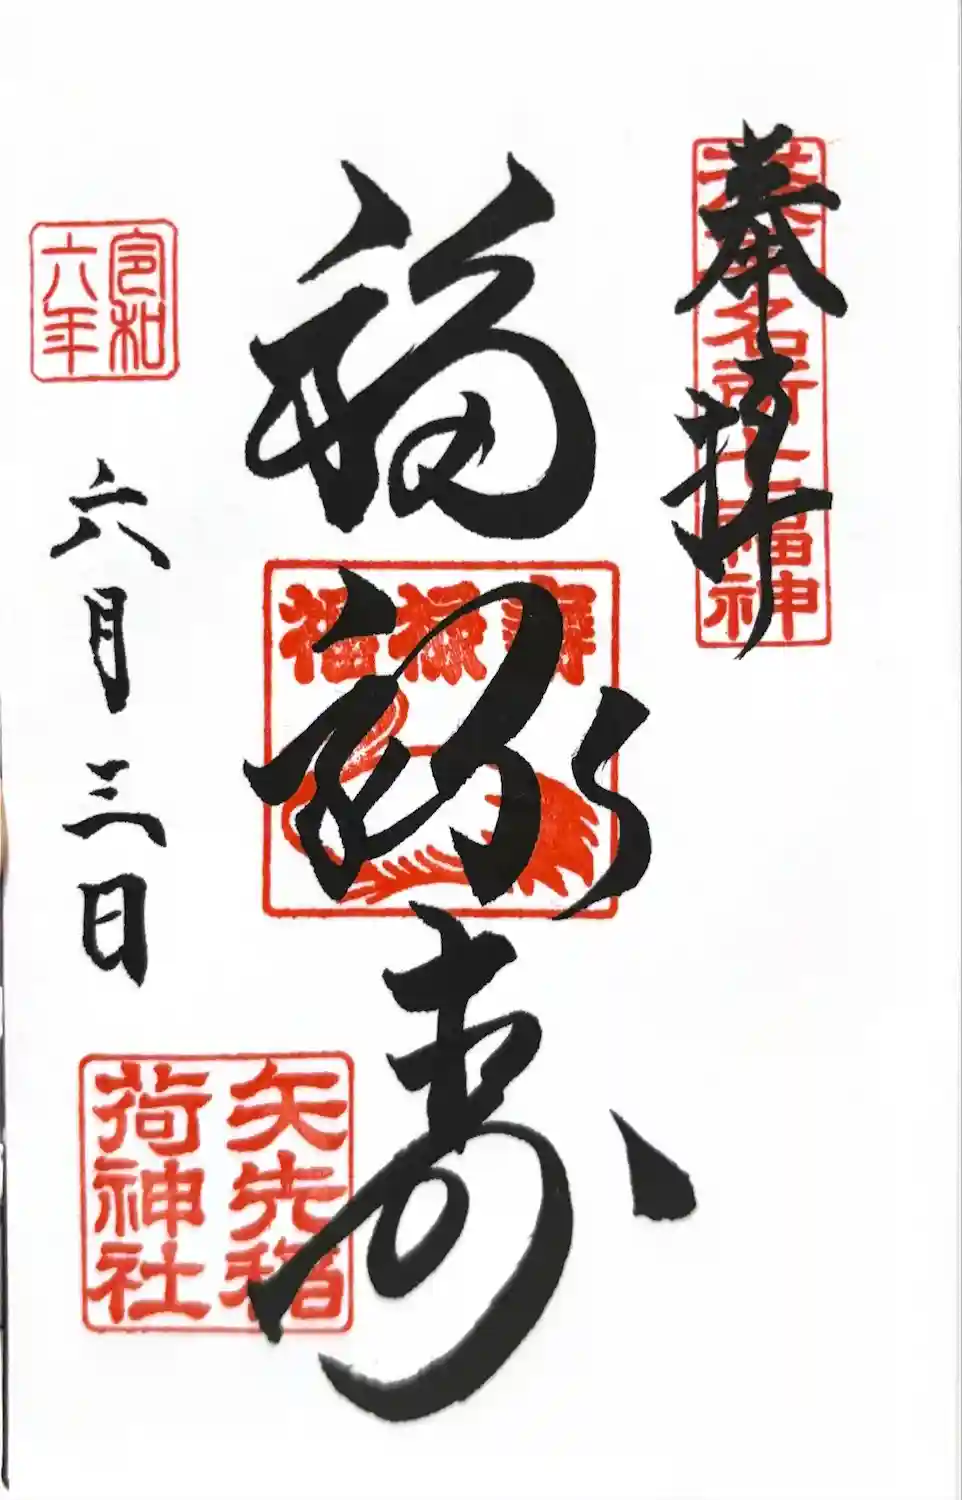 奉拝
浅草名所七福神
福禄寿
福禄寿
令和
六年
六月三日
矢先稲
荷神社